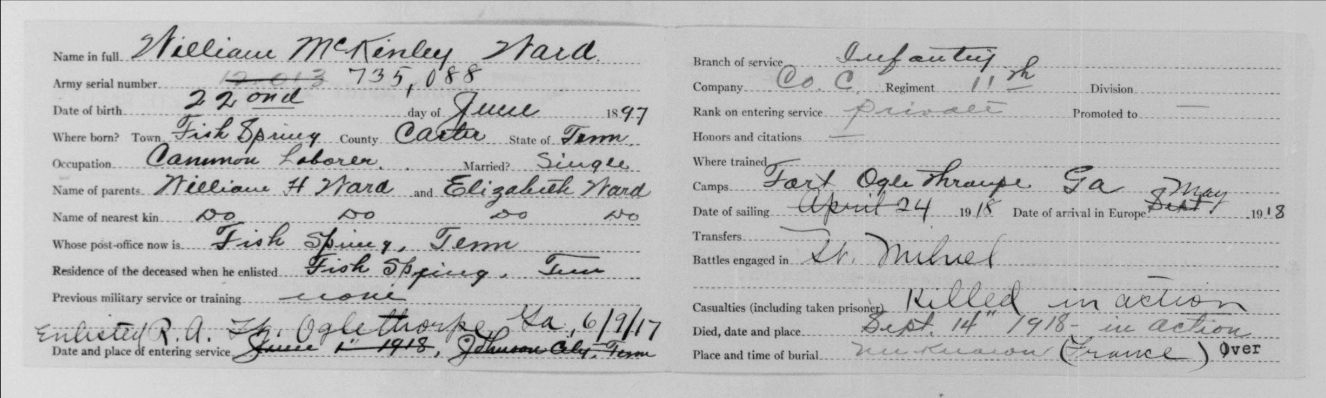 Name in full William McKinley Ward.
Army serial number 12 013 735,088
Date of birth 22ond day of June 1897
Where born? Town Fish Spring County Carter State of Tenn
Occupation Cammon Laborer. Married? Single
Name of parents William H Ward and Elizabeth Ward
Name of nearest kin Do Do Do Do
Whose post-office now is Fish Spring, Tenn
Residence of the deceased when he enlisted Fish Spring, Tenn
Previous military service or training none
Enlisted R.A. Ft. Oglethorpe, Ga, 6/9/17
Date and place of entering service June 1" 1918, Johnson City, Tenn
Branch of service Infantry
Company Co. C. Regiment 11th Division
Rank on entering service private Promoted to —
Honors and citations —
Where trained
Camps Fort Oglethraupe Ga
Date of sailing April 24 1918 Date of arrival in Europe Sept May 1918
Transfers
Battles engaged in St. Mihiel
Casualties (including taken prisoner) Killed in action
Died, date and place Sept. 14" 1918 - in action
Place and time of burial unknown (France) Over